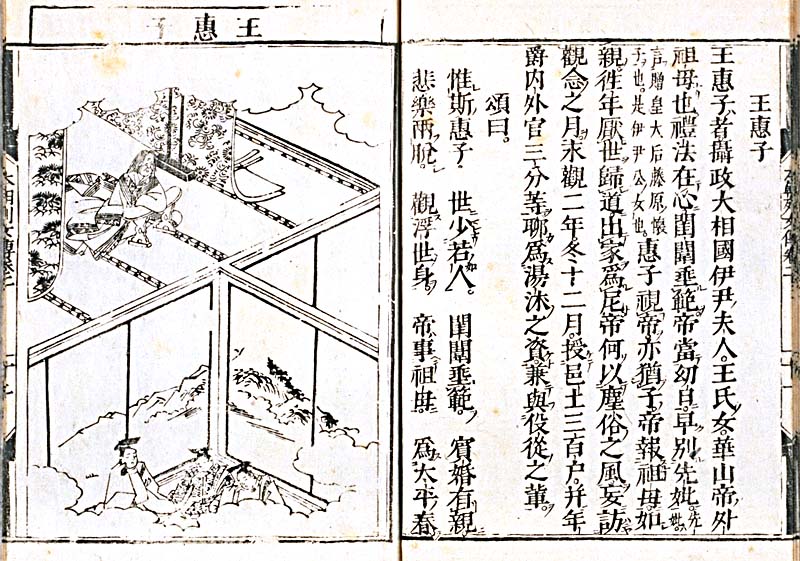 王惠子
王惠子者攝政大相國伊尹夫人。王氏女。華山帝外
祖母也禮法在心閨閫垂範。帝當幼日。早別先妣。先妣。
言贈皇大后藤原懷
子也。是伊尹公女也。
惠子視帝亦猶子。帝報祖母如
親。徃年厭世歸道出家爲尼帝何以塵俗之風妄訪
觀念之月末觀二年冬十二月。授邑土三百户。并年
爵内外官三分等。聊爲湯沐之資。兼與役從之輩。
頌曰。
惟斯惠子。 世少若人。 閨閫垂範。 賓婚有親
悲樂兩脫。 觀浮世身。 帝事祖母。 爲太平春
王惠子